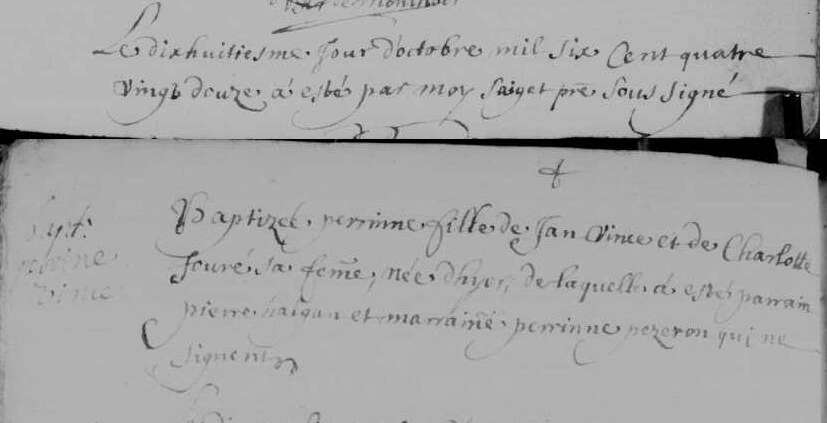 Le dixhuitiesme Jour d'octobre mil six Cent quatre
vingt douze á esté par moy Saiget pre sous signé
Bapt.
perrine
Vince
Baptizeé perrinne fille de Jan Vince et de Charlotte
Jouré sa feme, née d'hyer, de laquelle á esté parrain
pierre haigan et marraine perrinne pezeron qui ne
signent